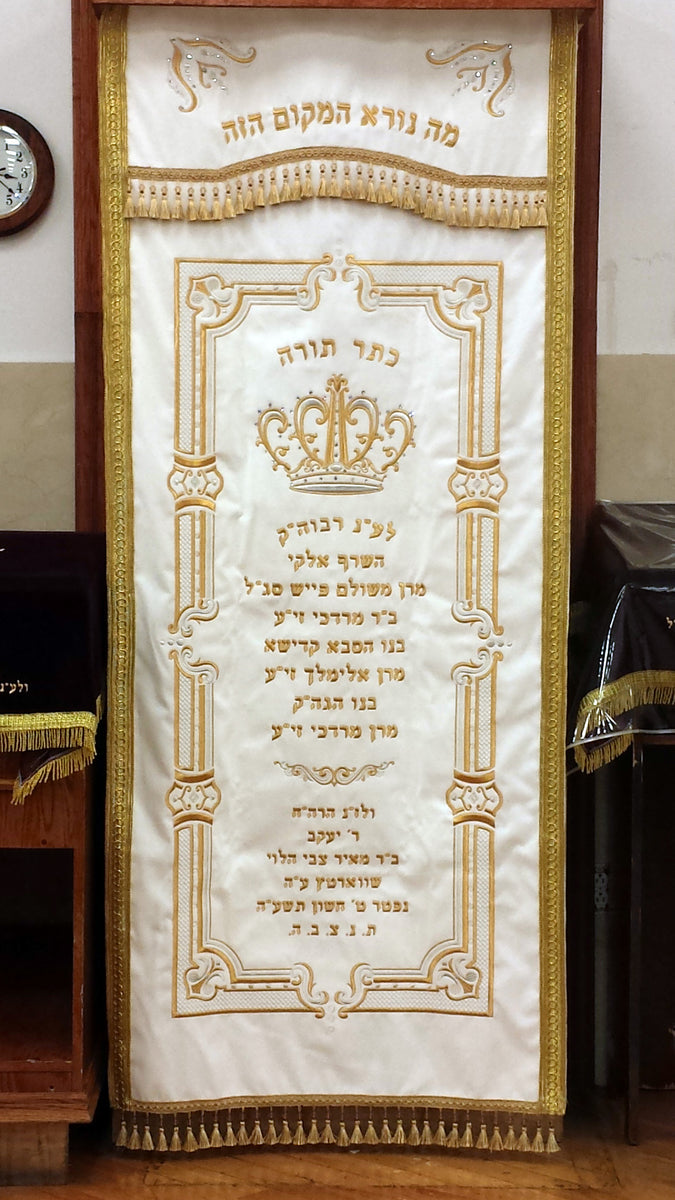 מה נורא המקום הזה
כתר תורה
לע״נ רבוה״ק
השרף אלקי
מרן משולם פייש סג״ל
ב״ר מרדכי זי״ע
בנו הסבא קדישא
מרן אלימלך זי״ע
בנו הגה״ק
מרן מרדכי זי״ע
ולז״נ הרה״ח
ר׳ יעקב
ב״ר מאיר צבי הלוי
שווארטץ ע״ה
נפטר ט׳ חשון תשע״ה
ת. נ. צ. ב. ה.
ולע״נ
2
3
4
5